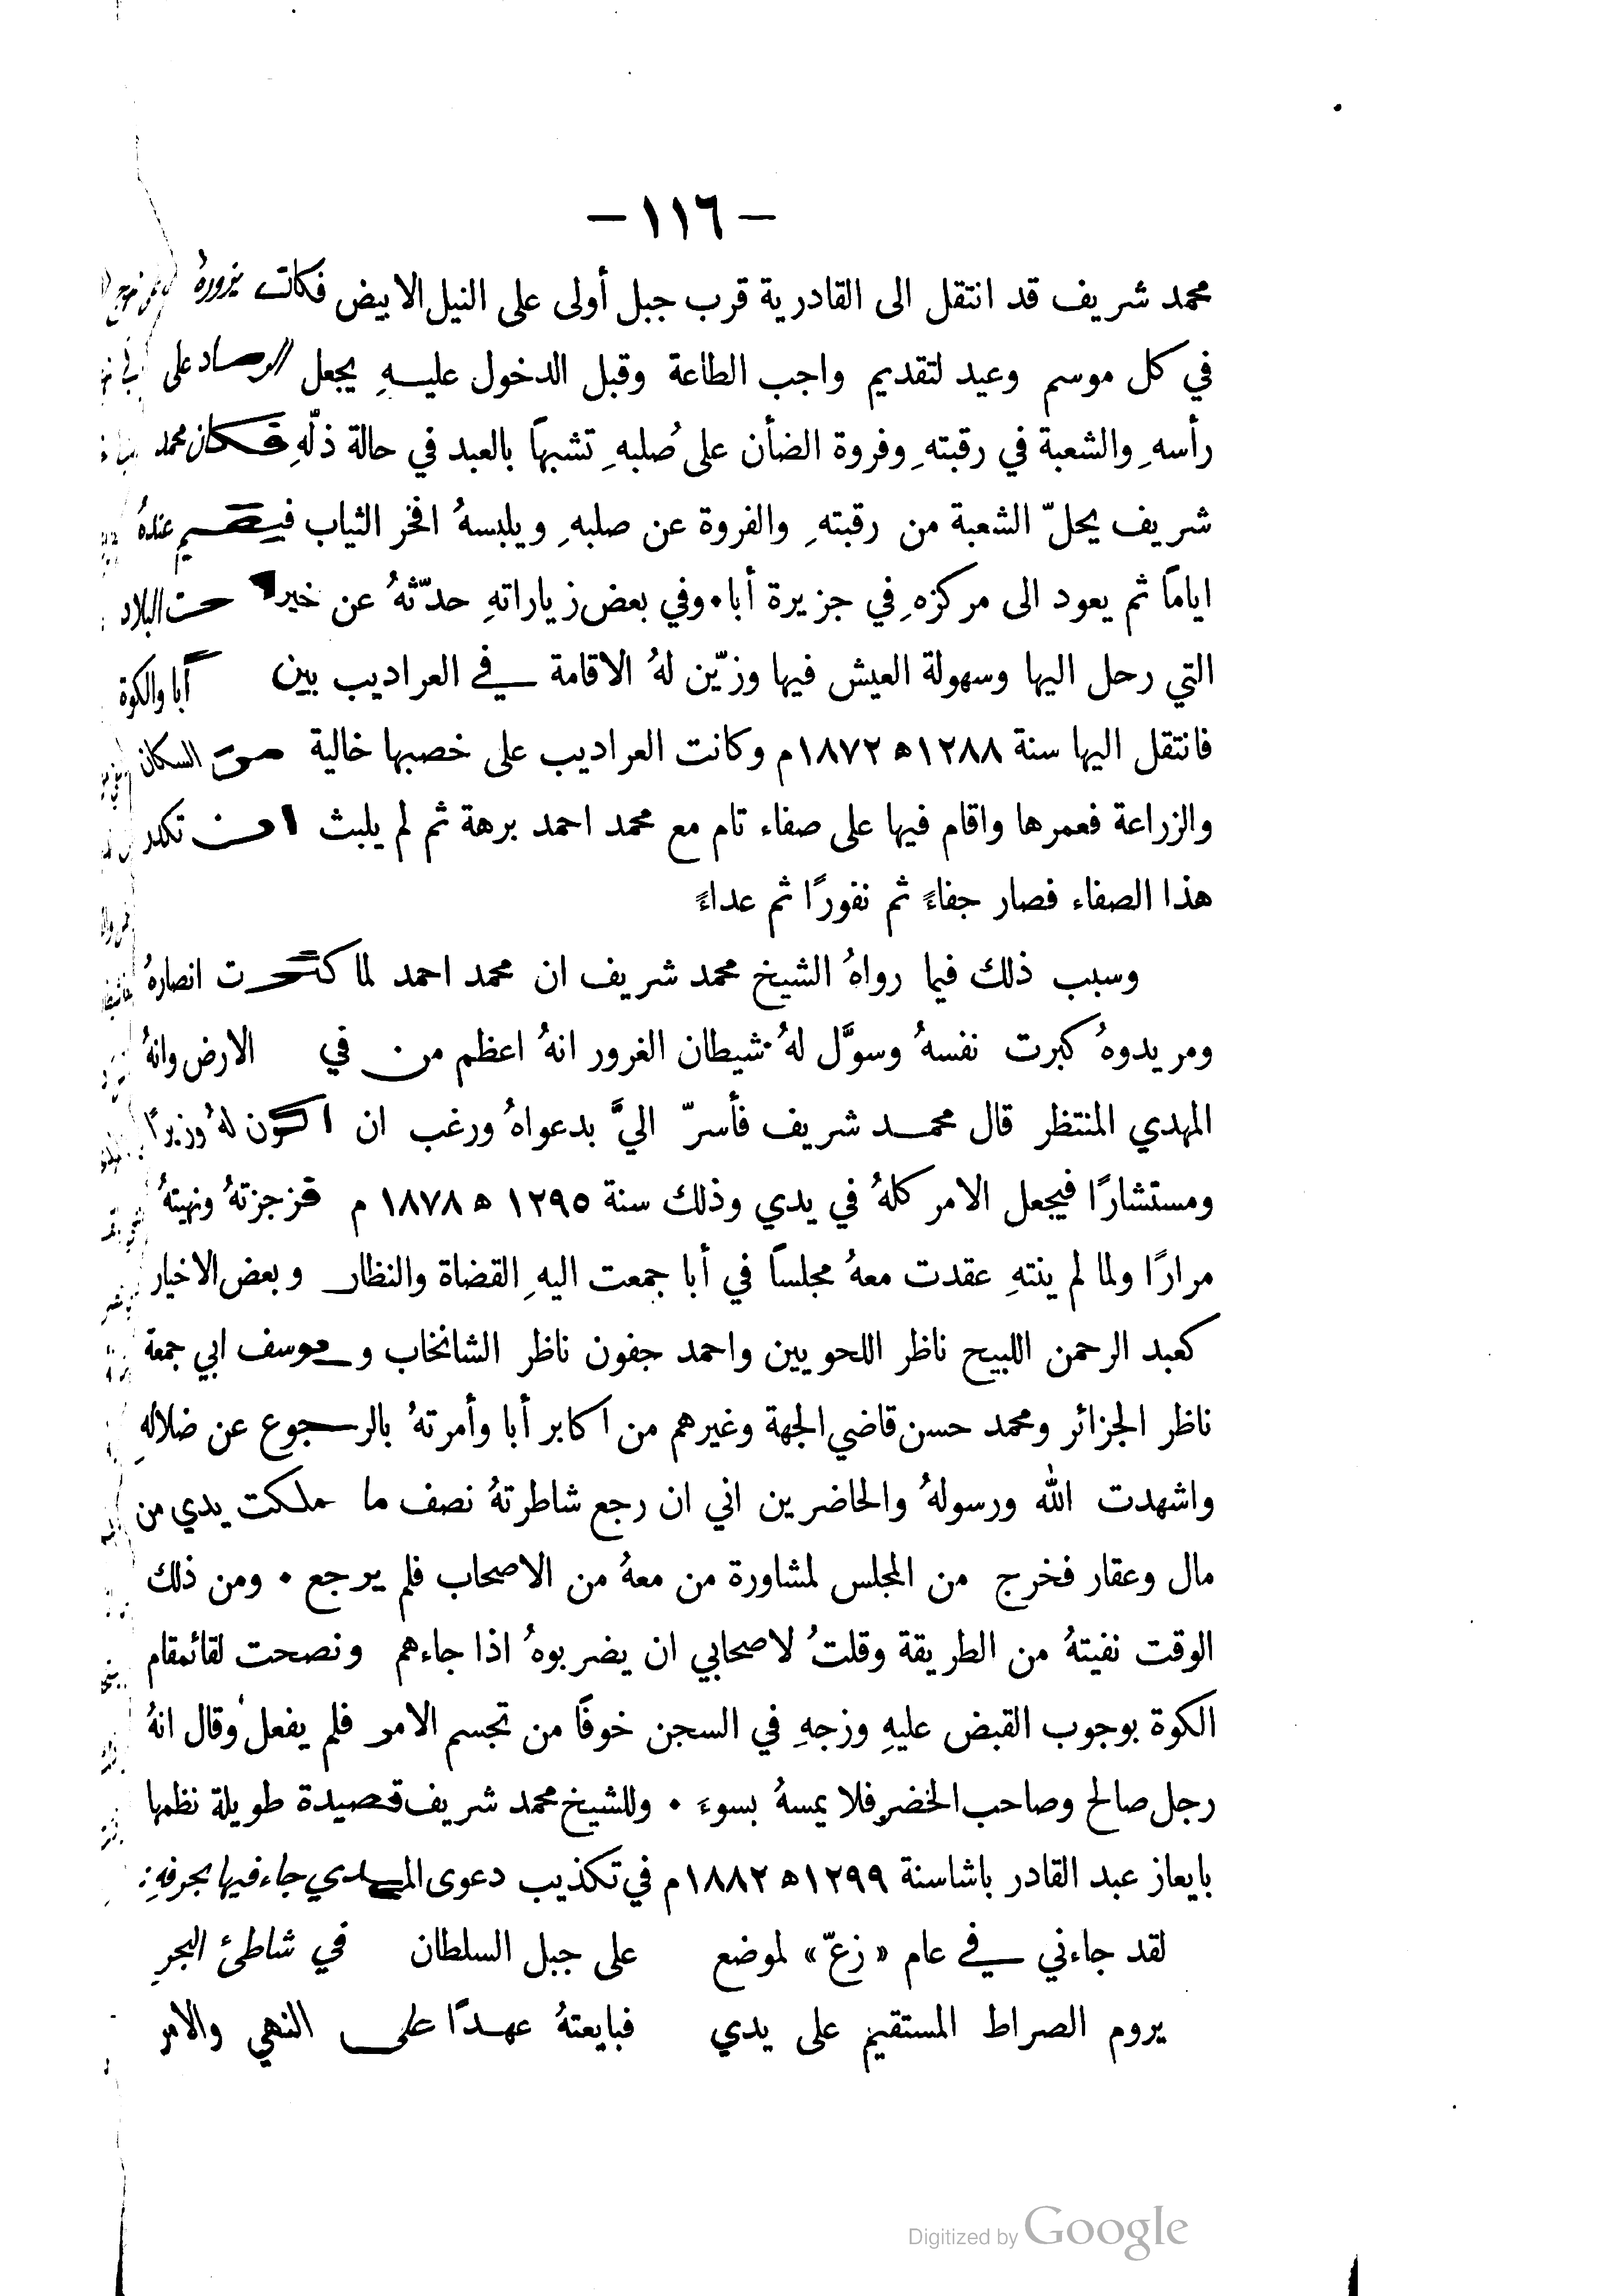 — ١١٦ —
محمد شريف قد انتقل الى القادرية قرب جبل أولى على النيل الابيض فكان يزورهُ
في كل موسم وعيد لتقديم واجب الطاعة وقبل الدخول عليهِ يجعل الرماد على
رأسهِ والشعبة في رقبتهِ وفروة الضأن على صُلبهِ تشبهًا بالعبد في حالة ذلّهِ فكان محمد
شريف يحلّ الشعبة من رقبتهِ والفروة عن صلبهِ ويلبسهُ افخر الثياب فيقيم عندهُ
ايامًا ثم يعود الى مركزهِ في جزيرة أبا ٠ وفي بعض زياراتهِ حدّثهُ عن خير البلاد
التي رحل اليها وسهولة العيش فيها وزيّن لهُ الاقامة في العراديب بين أبا والكوة
فانتقل اليها سنة ١٢٨٨ ه ١٨٧٢ م وكانت العراديب على خصبها خالية من السكان
والزراعة فعمرها واقام فيها على صفاء تام مع محمد احمد برهة ثم لم يلبث ان تكدر
هذا الصفاء فصار جفاءً ثم نفورًا ثم عداءً
وسبب ذلك فيما رواهُ الشيخ محمد شريف ان محمد احمد لما كثرت انصارهُ
ومريدوهُ كبرت نفسهُ وسوَّل لهُ شيطان الغرور انهُ اعظم من في الارض وانهُ
المهدي المنتظر قال محمد شريف فأسرّ اليَّ بدعواهُ ورغب ان اكون لهُ وزيرًا
ومستشارًا فيجعل الامر كلهُ في يدي وذلك سنة ١٢٩٥ ه ١٨٧٨ م فزجزتهُ ونهيتهُ
مرارًا ولما لم ينتهِ عقدت معهُ مجلسًا في أبا جمعت اليهِ القضاة والنظار وبعض الاخيار
كعبد الرحمن اللبيح ناظر اللحويين واحمد جفون ناظر الشانخاب وموسف ابي جمعة
ناظر الجزائر ومحمد حسن قاضي الجهة وغيرهم من اكابر أبا وأمرتهُ بالرجوع عن ضلالهِ
واشهدت الله ورسولهُ والحاضرين اني ان رجع شاطرتهُ نصف ما ملكت يدي من
مال وعقار فخرج من المجلس لمشاورة من معهُ من الاصحاب فلم يرجع ٠ ومن ذلك
الوقت نفيتهُ من الطريقة وقلتُ لاصحابي ان يضربوهُ اذا جاءهم ونصحت لقائمقام
الكوة بوجوب القبض عليهِ وزجهِ في السجن خوفًا من تجسم الامر فلم يفعل وقال انهُ
رجل صالح وصاحب الخضر فلا يمسهُ بسوء ٠ وللشيخ محمد شريف قصيدة طويلة نظمها
بايعاز عبد القادر باشا سنة ١٢٩٩ ه ١٨٨٢ م في تكذيب دعوى المهدي جاء فيها بحرفهِ :
لقد جاءني في عام « زعّ » لموضع على جبل السلطان في شاطئ البحرِ
يروم الصراط المستقيم على يدي فبايعتهُ عهدًا على النهي والامرِ
Digitized by Google